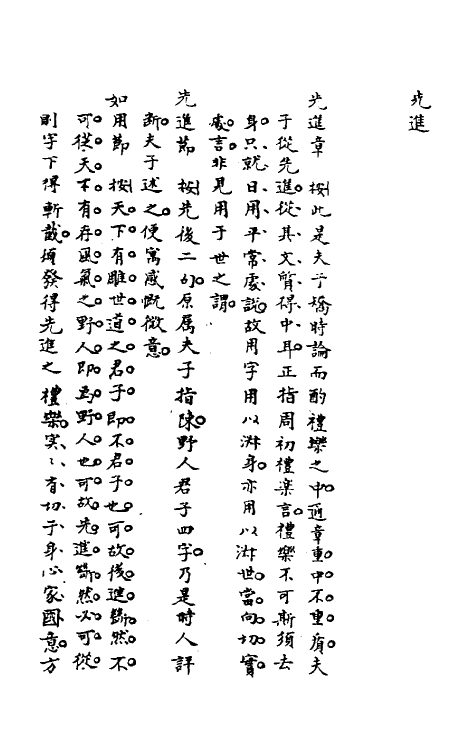 先進
先進章　按此是夫子矯時論而酌禮樂之中通章重中不重有夫
子從先進從其文質得中耳正指周初禮楽言禮樂不可斯須去
身只就日用平常處説故用字用以淑身亦用以淑世當向切實
處言非見用于世之謂
先進節　按先後二句原属夫子指陳野人君子四字乃是時人評
断夫子述之便寓感慨微意
如用節　按天下有雖世道之君子即不君子也可故後進斷然不
可從天下有存風氣之野人即為野人也可故先進斷然必可從
則字下得斬截須發得先進之禮樂实〻有切于身心家國意方